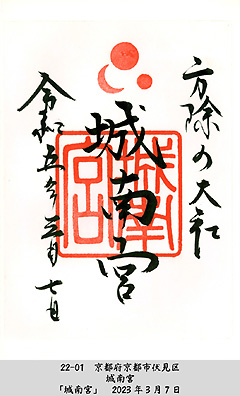 方除の大社
城南宮
令和五年三月七日
城南宮
22-01 京都府京都市伏見区
城南宮
「城南宮」 2023年3月7日